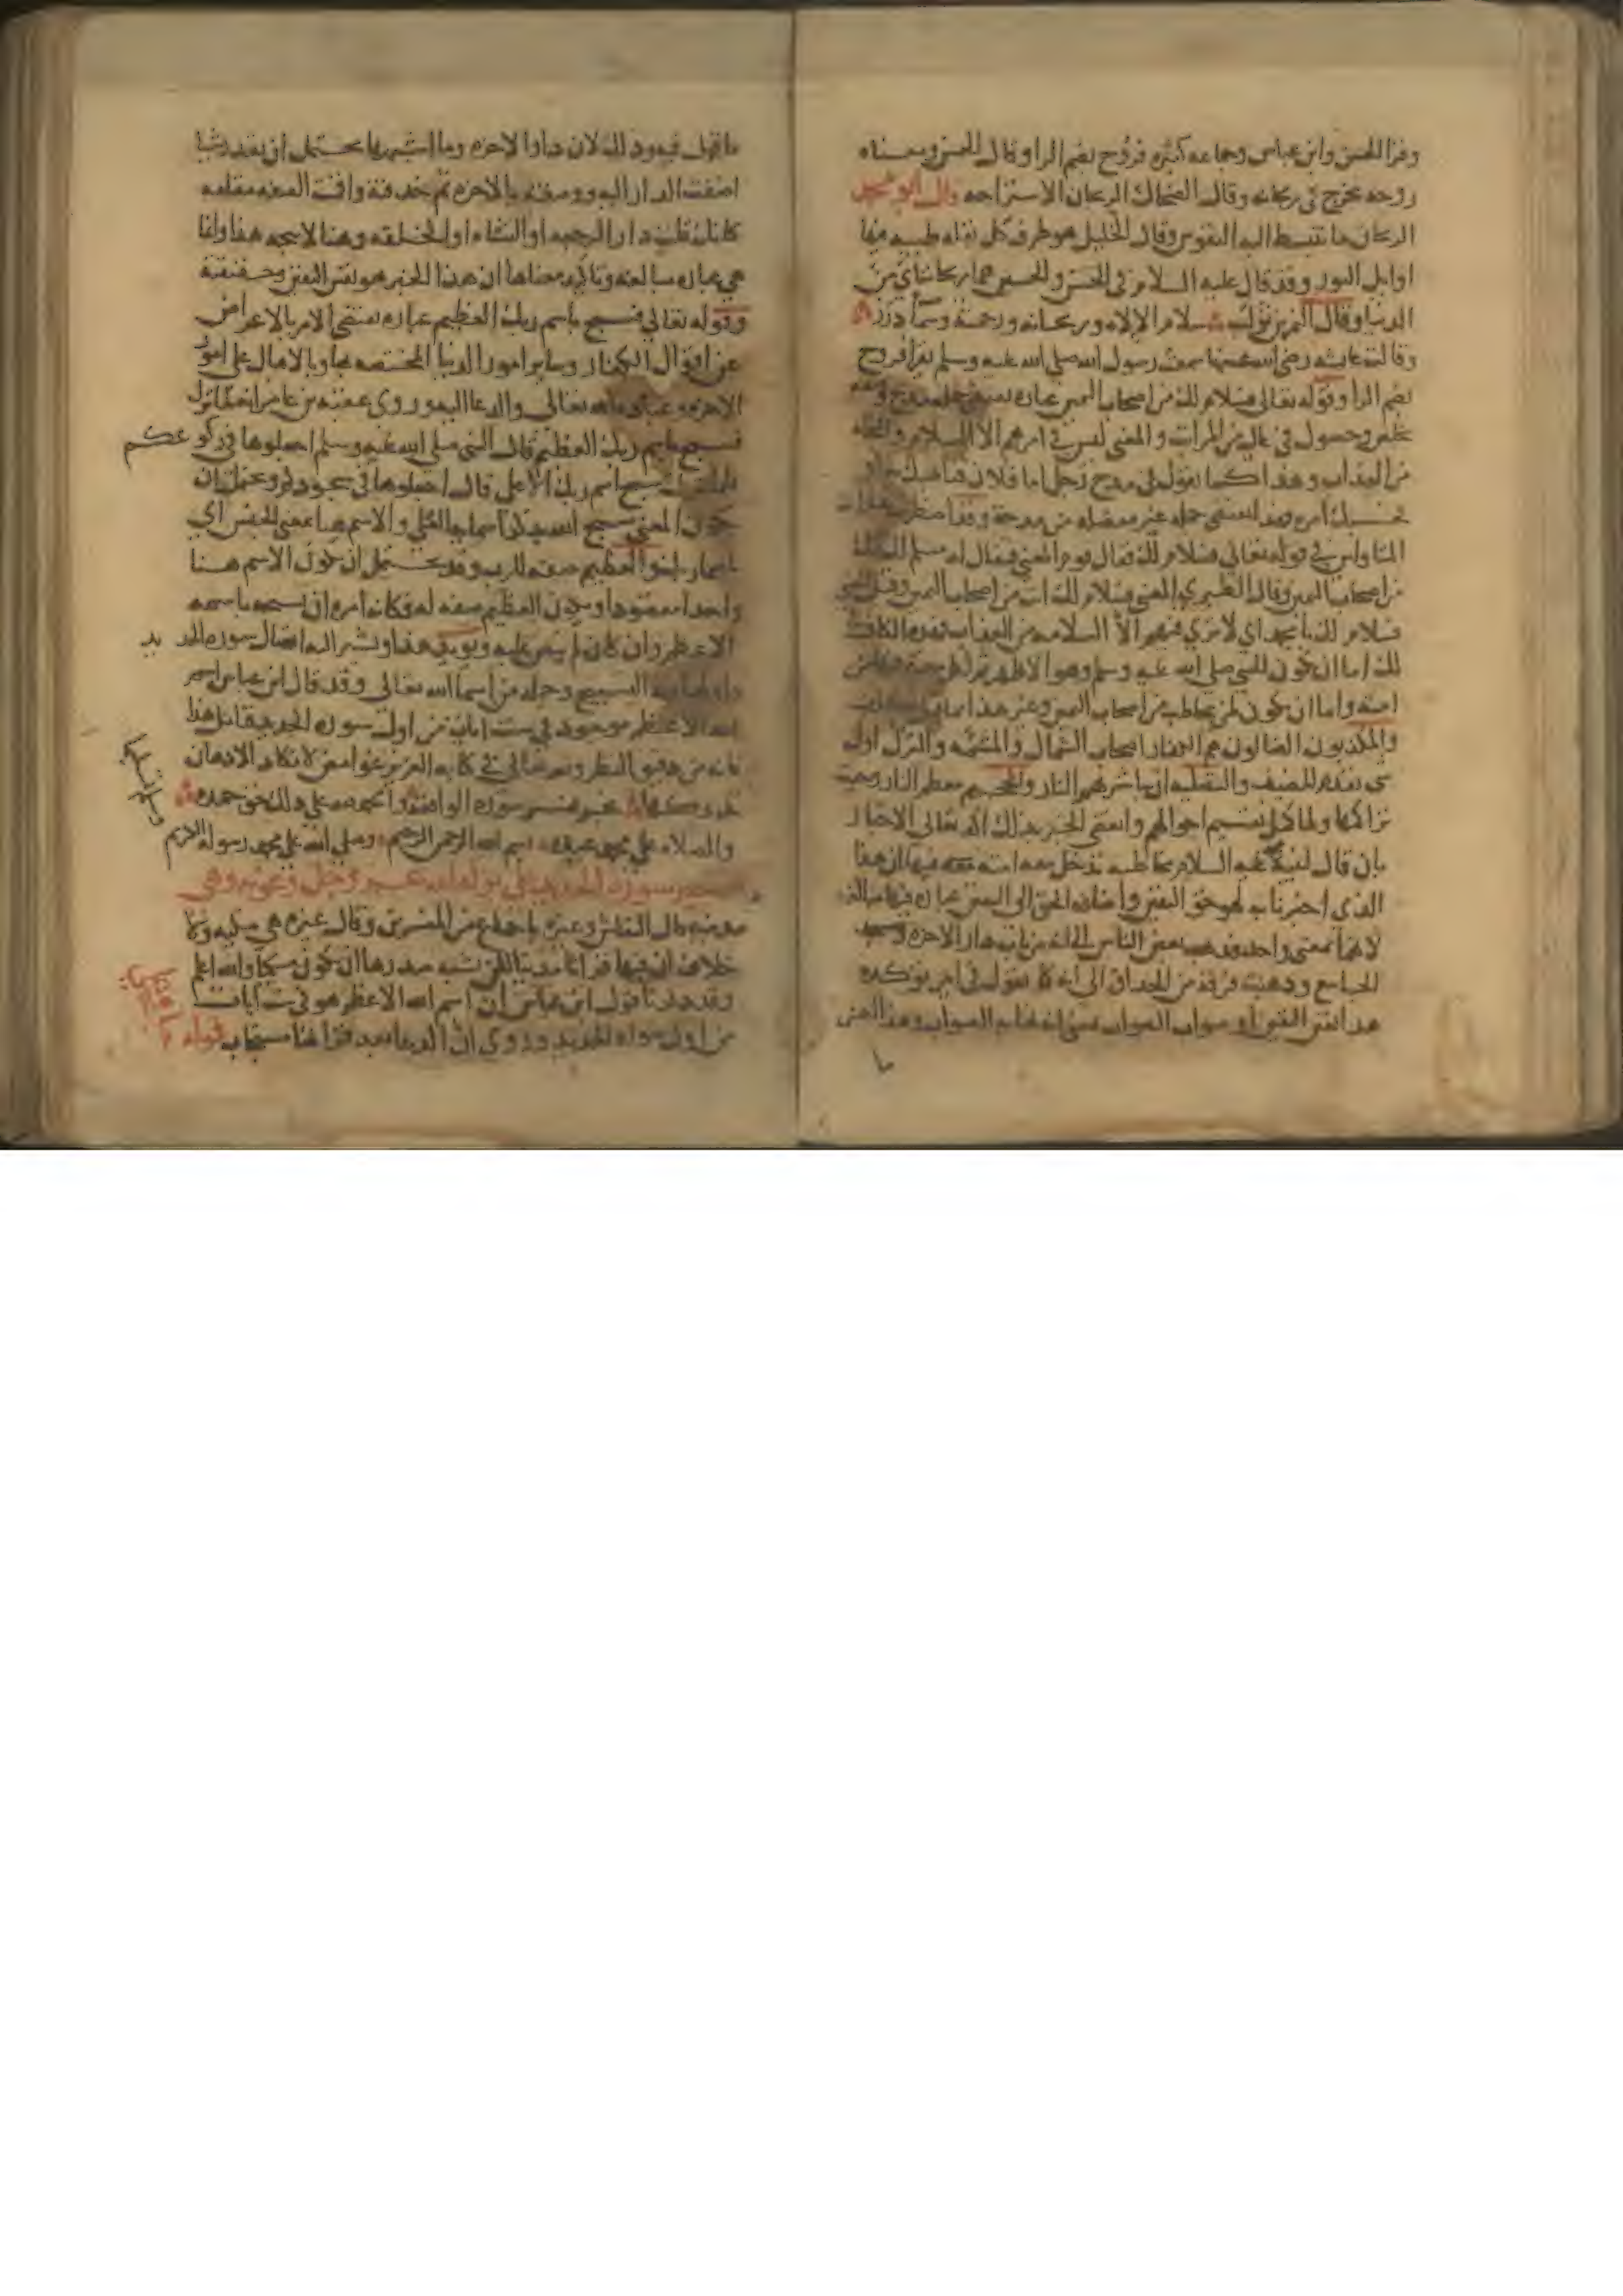 وقرا الحسن وابن عباس وجماعه كثيره فروح بضم الرا وقال الحسن ومعناه
روحه يخرج في ريحانه وقال الضحاك الريحان الاستراحه قال ابو محمد
الريحان ما تنبسط اليه النفوس وقال الخليل هو طرف كل بقله طيبه فيها
اوايل النور وقد قال عليه السلام في الحسن والحسين هما ريحانتاي من
الدنيا وقال النمر بن تولب سلام الاله وريحانه ورحمته وسما درر
وقالت عايشه رضي الله عنها سمعت رسول الله صلى الله عليه وسلم يقرا فروح
بضم الرا وقوله تعالى فسلام لك من اصحاب اليمين عباره تقتضي جملة مدح
وحصول في عال من المراتب والمعنى ليس في امرهم الا السلام والنجاه
من العذاب وهذا كما تقول في مدح رجل اما فلان فناهيك به او
حسبك امره فهذا يقتضي جمله غير مفصله من مدحه وقد اضطربت عبارات
المتاولين في قوله تعالى فسلام لك فقال قوم المعنى فيقال له مسلم لك انك
من اصحاب اليمين وقال الطبري المعنى فسلام لك انت من اصحاب اليمين وقيل المعنى
فسلام لك يا محمد اي لا ترى فيهم الا السلامه من العذاب فهذه الكاف في
لك اما ان تكون للنبي صلى الله عليه وسلم وهو الاظهر ثم لكل معتبر فيها من
امته واما ان تكون لمن يخاطب من اصحاب اليمين وغير هذا مما قيل تكلف
والمكذبون الضالون هم الكفار اصحاب الشمال والمشئمه والنزل اول
شي يقدم للضيف والتصليه ان يباشر بهم النار والجحيم معظم النار وحيث
تراكمها ولما كمل تقسيم احوالهم وانقضى الخبر بذلك اكد تعالى الاخبار
بان قال لنبيه عليه السلام مخاطبه تدخل معه امته فيها ان هذا
الذي اخبرناك به لهو حق اليقين واضافه الحق الى اليقين عباره فيها مبالغه
لانهما بمعنى واحد فذهب بعض الناس الى انه من باب دار الاخره ومسجد
الجامع وذهبت فرقة من الحذاق الى انه كما تقول في امر توكده
هذا يقين اليقين او صواب الصواب بمعنى انه نهايه الصواب وهذا احسن
ما
ما قيل فيه وذلك لان دار الاخره وما اشبهها يحتمل ان تقدر شيا
اضفت الدار اليه ووصفته بالاخره ثم حذفته واقمت الصفه مقامه
كانك قلت دار الرجعه او النشاه او الخلقه وهنا لا يتجه هذا وانما
هي عباره مبالغه وتاكيد معناها ان هذا الخبر هو نفس اليقين وحقيقته
وقوله تعالى فسبح باسم ربك العظيم عباره تقتضي الامر بالاعراض
عن اقوال الكفار وساير امور الدنيا المختصه بها وبالاقبال على امور
الاخره وعباده الله تعالى والدعا اليه وروى عقبه بن عامر انه لما نزلت
فسبح باسم ربك العظيم قال النبي صلى الله عليه وسلم اجعلوها في ركوعكم
فلما نزلت سبح اسم ربك الاعلى قال اجعلوها في سجودكم ويحتمل ان
يكون المعنى سبح لله بذكر اسمايه العلى والاسم هنا بمعنى الجنس اي
باسما ربك والعظيم صفه للرب وقد يحتمل ان يكون الاسم هنا
واحدا مقصودا ويكون العظيم صفه له فكانه امره ان يسبحه باسمه
الاعظم وان كان لم ينص عليه ويويد هذا ويشير اليه اتصال سوره الحديد
واولها فيه التسبيح وجمله من اسما الله تعالى وقد قال ابن عباس اسم
الله الاعظم موجود في ست ايات من اول سوره الحديد فتامل هذا
فانه من دقيق النظر ولله تعالى في كتابه العزيز غوامض لا تكاد الاذهان
تدركها نجز تفسير سورة الواقعة والحمد لله على ذلك حق حمده
والصلاه على محمد عبده بسم الله الرحمن الرحيم وصلى الله على محمد رسوله الكريم
تفسير سورة الحديد
مدنيه قال النقاش وغيره باجماع من المفسرين وقال غيره هي مكيه ولا
خلاف ان فيها قرانا مدنيا لكن يشبه صدرها ان يكون مكيا والله اعلم
وقد ذكرنا قول ابن عباس ان اسم الله الاعظم هو في ست ايات
من اول سورة الحديد وروي ان الدعا بعد قراتها مستجاب قوله